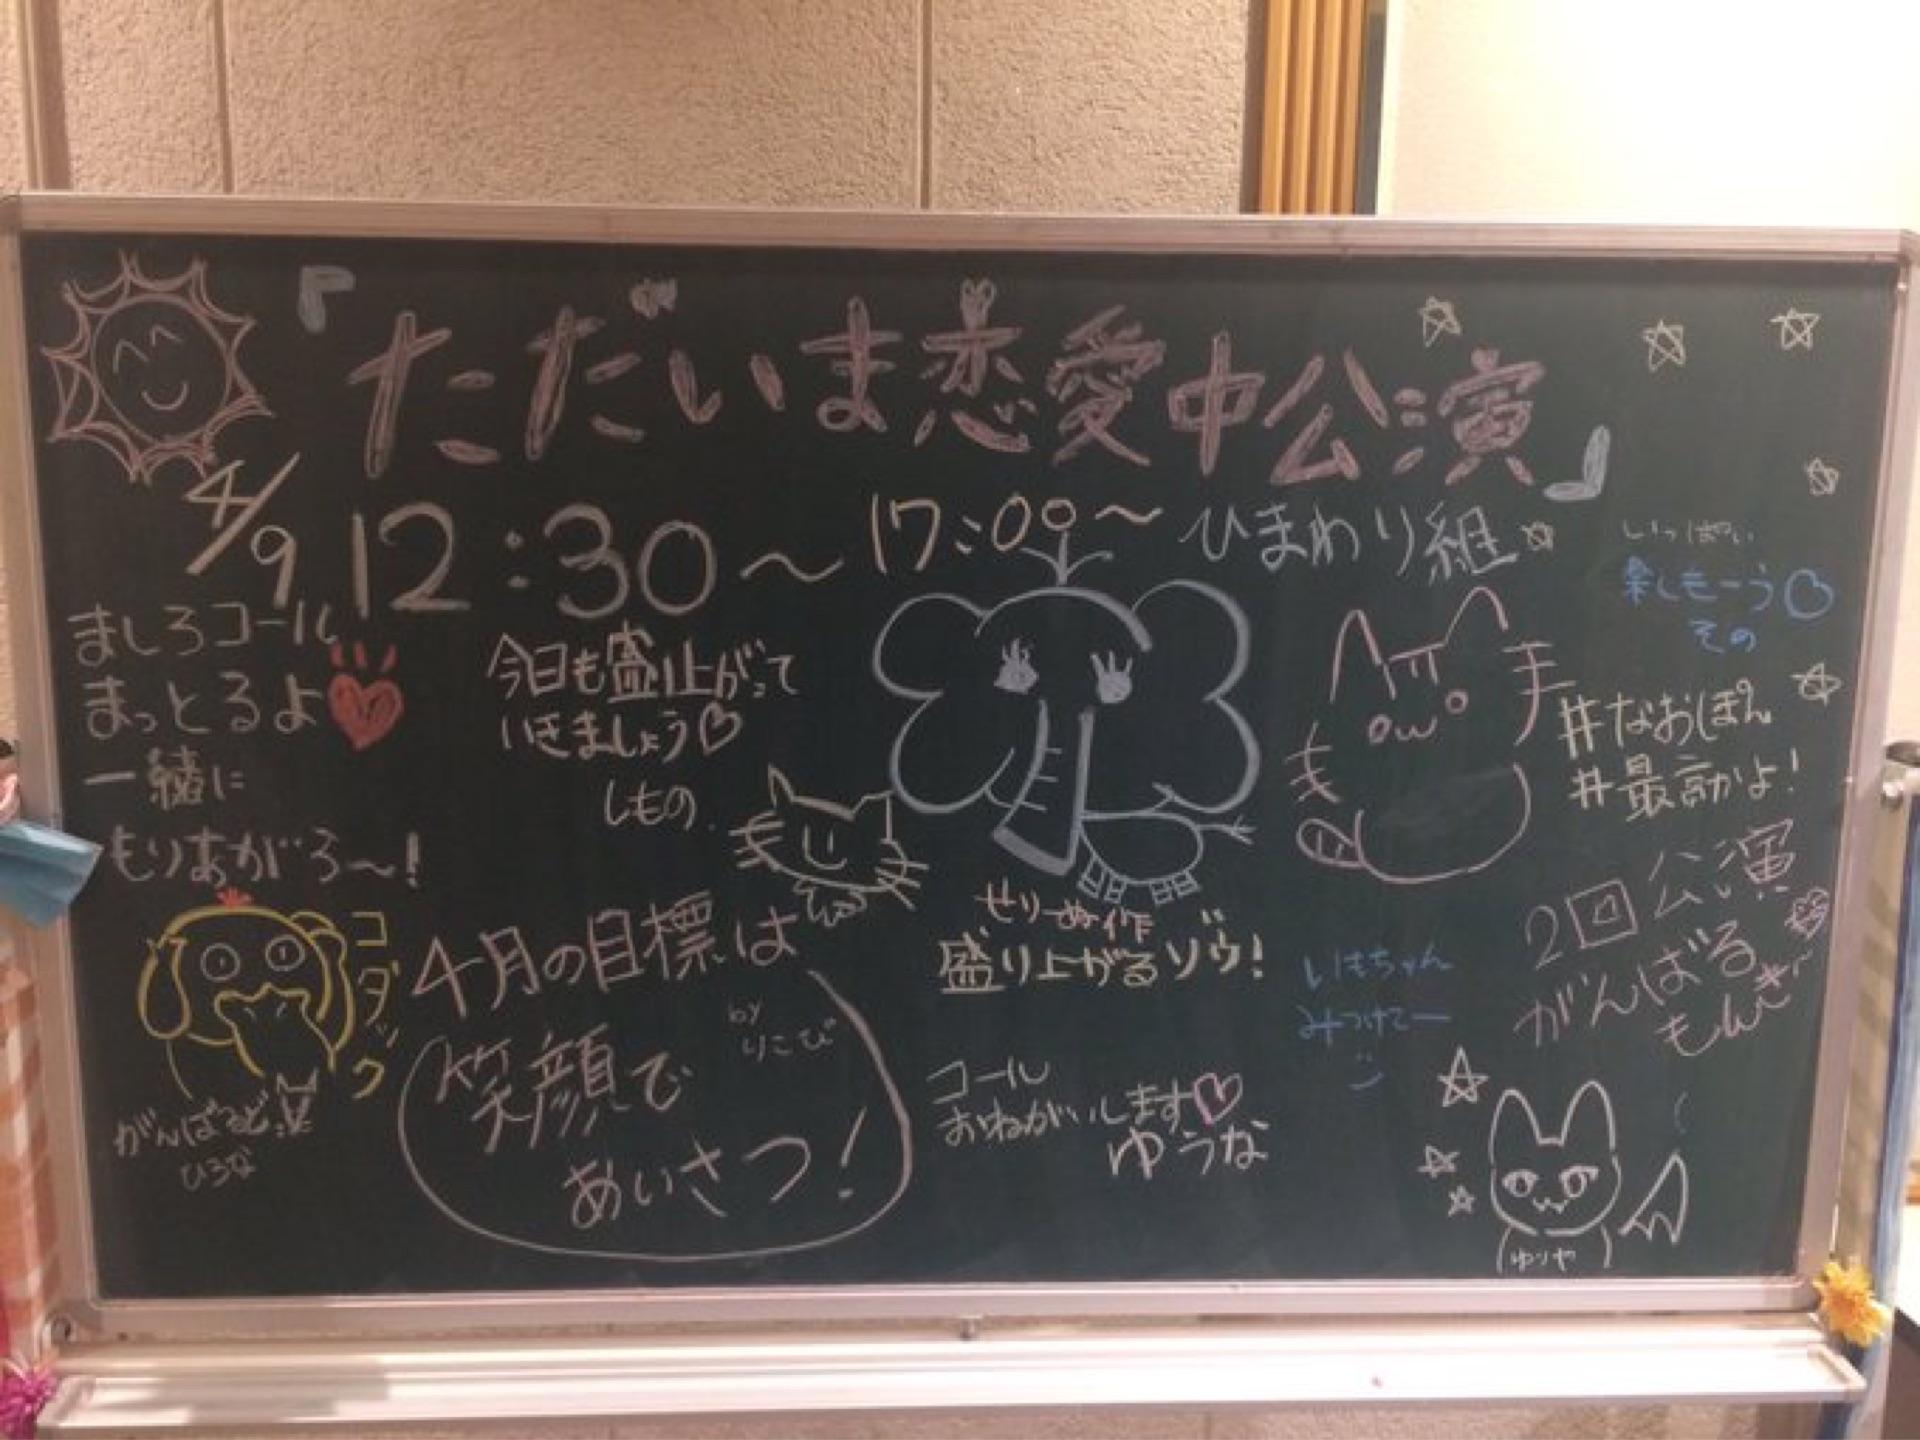 『ただいま恋愛中公演』
4/9 12:30～ 17:00～ ひまわり組
ましろコール
まっとるよ
一緒に
もりあがろ～!
今日も盛り上がって
いきましょう♡
しもの
いっぱい
楽しもーう♡
その
#なおぽん
#最高かよ!
2回公演
がんばる
もんき
コダック
がんばるど
ひろな
4月の目標は
by
りこぴ
笑顔で
あいさつ!
せりーぬ作
盛り上がるゾウ!
コール
おねがいします♡
ゆうな
いもちゃん
みつけてー
ゆりや